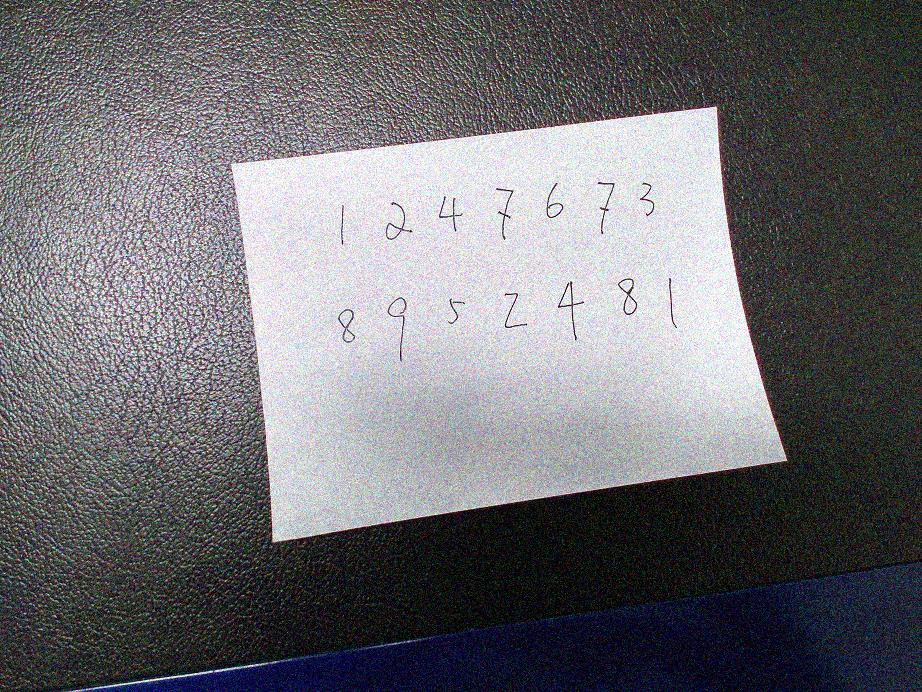 1 2 4 7 6 7 3
8 9 5 2 4 8 1